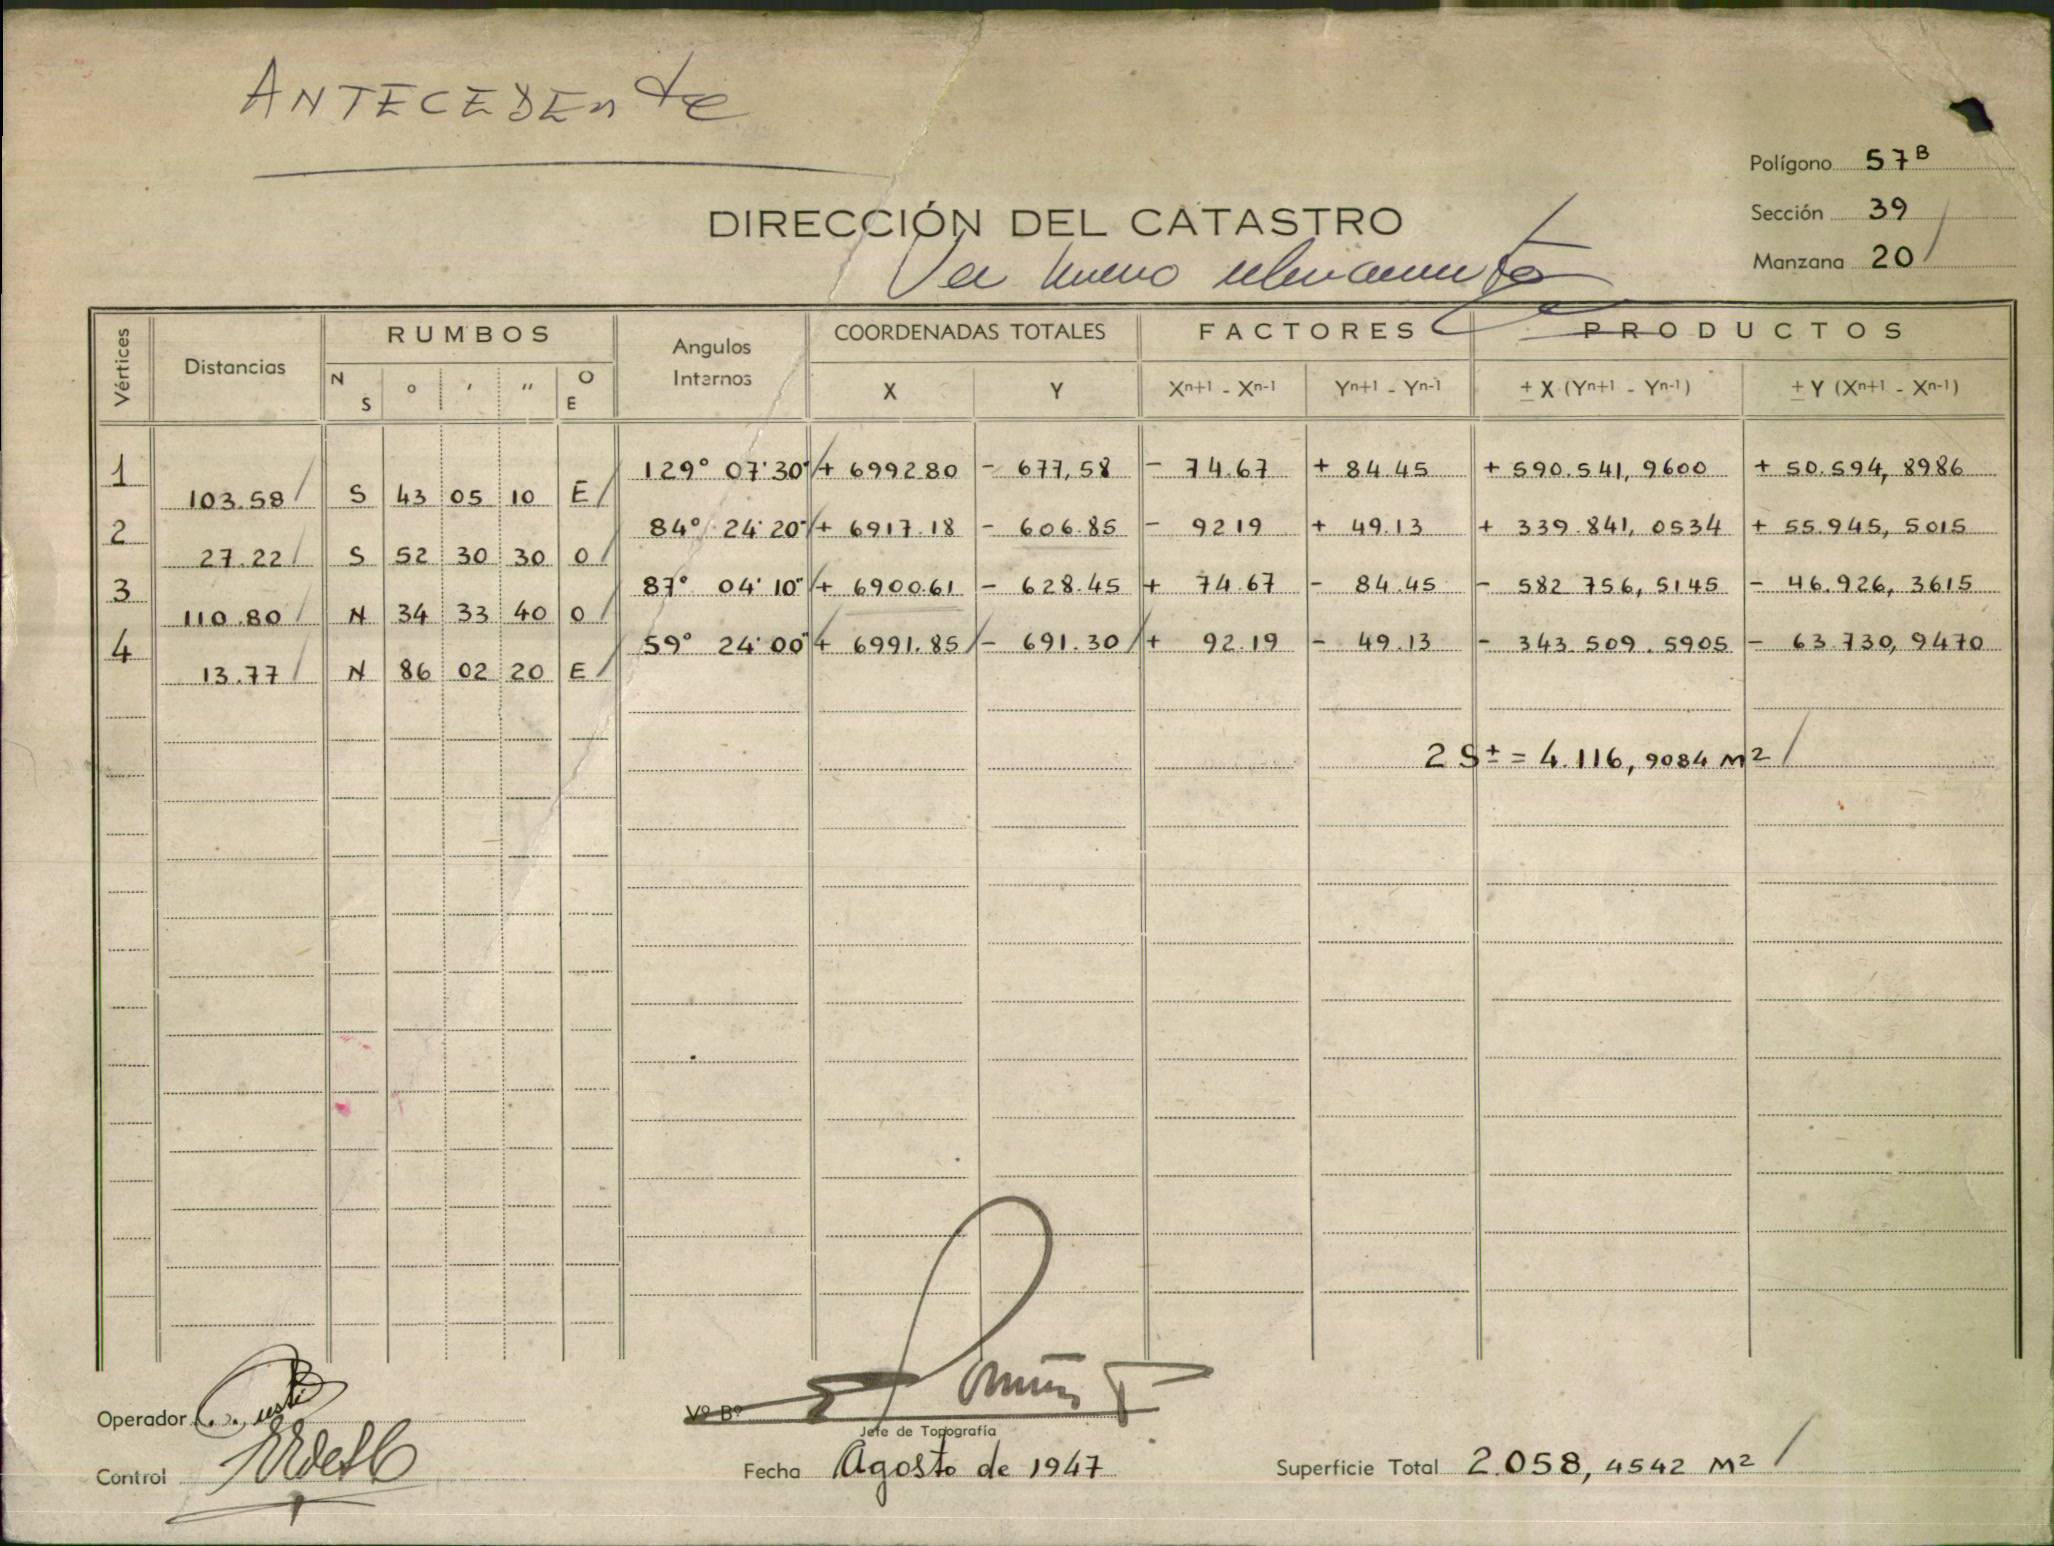 ANTECEDEnte
Polígono 57B
Sección 39
DIRECCIÓN DEL CATASTRO
Manzana 20
Ver nuevo relevamiento
Vértices Distancias RUMBOS Angulos Internos COORDENADAS TOTALES FACTORES PRODUCTOS
N S ° ′ ″ O E X Y Xⁿ⁺¹ - Xⁿ⁻¹ Yⁿ⁺¹ - Yⁿ⁻¹ ± X (Yⁿ⁺¹ - Yⁿ⁻¹) ± Y (Xⁿ⁺¹ - Xⁿ⁻¹)
1 129° 07' 30" + 6992.80 - 677,58 - 74.67 + 84.45 + 590.541, 9600 + 50.594, 8986
103.58 S 43 05 10 E
2 84° 24' 20" + 6917.18 - 606.85 - 9219 + 49.13 + 339.841, 0534 + 55.945, 5015
27.22 S 52 30 30 O
3 87° 04' 10" + 6900.61 - 628.45 + 74.67 - 84.45 - 582 756, 5145 - 46.926, 3615
110.80 N 34 33 40 O
4 59° 24' 00" + 6991.85 - 691.30 + 92.19 - 49.13 - 343.509.5905 - 63.730, 9470
13.77 N 86 02 20 E
2 S± = 4.116, 9084 M²
Operador
Vº Bº
Jefe de Topografía
Control
Fecha Agosto de 1947
Superficie Total 2.058, 4542 M²